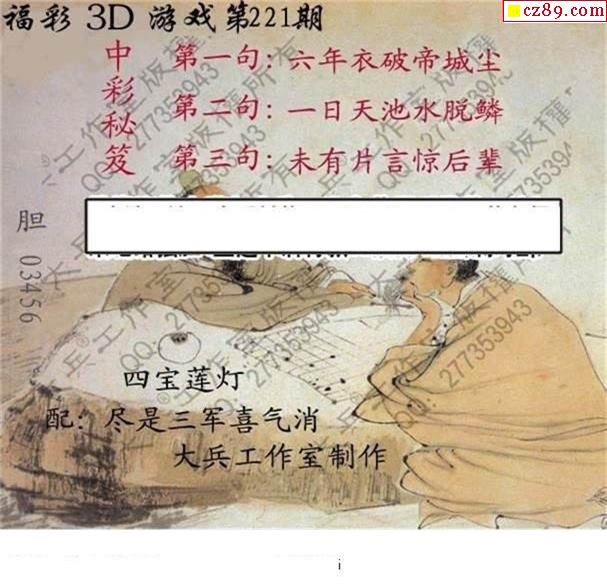 cz89.com
福彩 3D 游戏第221期
中彩秘笈
第一句:六年衣破帝城尘
第二句:一日天池水脱鳞
第三句:未有片言惊后辈
胆 03456
四宝莲灯
配:尽是三军喜气消
大兵工作室制作
大兵工作室版权所有
QQ:277353943
i